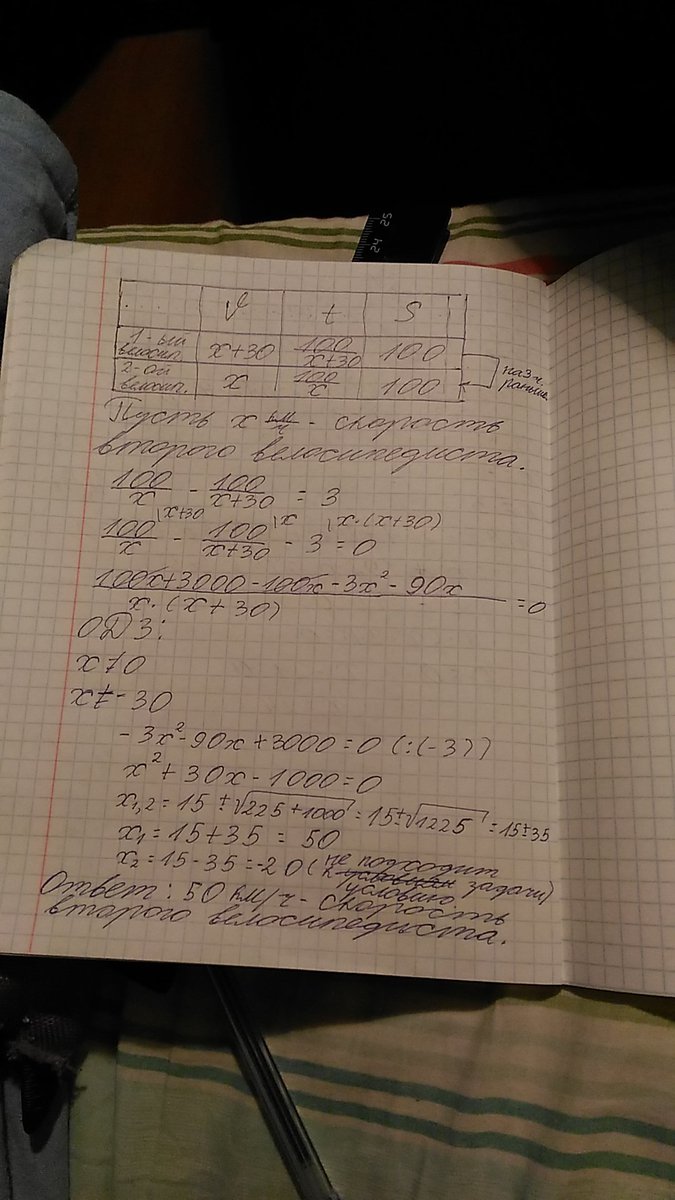 V t S
1-ый велосип. x+30 100/(x+30) 100
2-ой велосип. x 100/x 100
на 3 ч. раньше
Пусть x км/ч - скорость
второго велосипедиста.
100/x - 100/(x+30) = 3
100/x |x+30 - 100/(x+30) |x - 3 |x·(x+30) = 0
(100x+3000-100x-3x²-90x)/(x·(x+30)) = 0
ОДЗ:
x≠0
x≠-30
-3x²-90x+3000=0 (:(-3))
x²+30x-1000=0
x1,2=15±√225+1000=15±√1225=15±35
x1=15+35=50
x2=15-35=-20 (не подходит
условию задачи)
Ответ: 50 км/ч - скорость
второго велосипедиста.
24 25